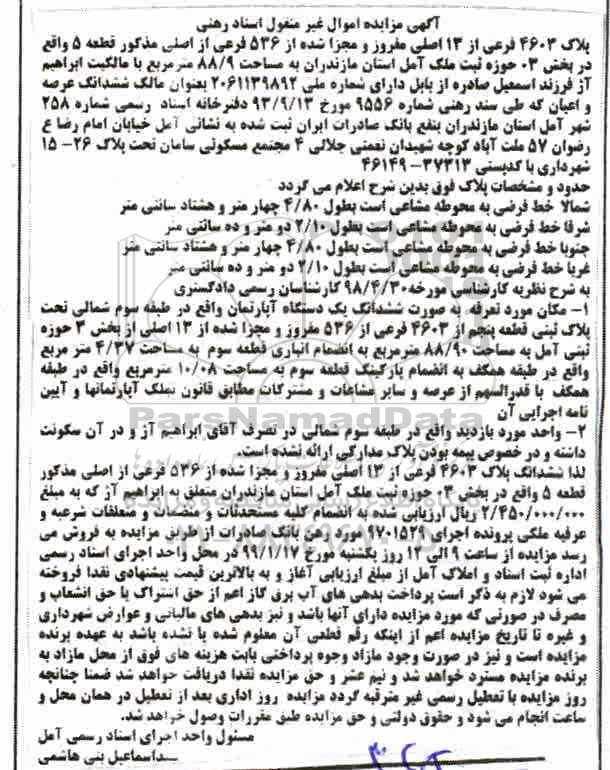 آگهی مزایده اموال غیر منقول اسناد رهنی
پلاک ۴۶۰۳ فرعی از ۱۳ اصلی مفروز و مجزا شده از ۵۳۶ فرعی از اصلی مذکور قطعه ۵ واقع
در بخش ۰۳ حوزه ثبت ملک آمل استان مازندران به مساحت ۸۸/۹ مترمربع با مالکیت ابراهیم
آژ فرزند اسمعیل صادره از بابل دارای شماره ملی ۲۰۶۱۱۳۹۸۹۲ بعنوان مالک ششدانگ عرصه
و اعیان که طی سند رهنی شماره ۹۵۵۶ مورخ ۹۳/۹/۱۳ دفترخانه اسناد رسمی شماره ۲۵۸
شهر آمل استان مازندران بنفع بانک صادرات ایران ثبت شده به نشانی آمل خیابان امام رضا ع
رضوان ۵۷ ملت آباد کوچه شهیدان نعمتی جلالی ۴ مجتمع مسکونی سامان تحت پلاک ۲۶- ۱۵
شهرداری با کدپستی ۳۷۳۱۳- ۴۶۱۴۹
حدود و مشخصات پلاک فوق بدین شرح اعلام می گردد
شمالا خط فرضی به محوطه مشاعی است بطول ۴/۸۰ چهار متر و هشتاد سانتی متر
شرقا خط فرضی به محوطه مشاعی است بطول ۲/۱۰ دو متر و ده سانتی متر
جنوبا خط فرضی به محوطه مشاعی است بطول ۴/۸۰ چهار متر و هشتاد سانتی متر
غربا خط فرضی به محوطه مشاعی است بطول ۲/۱۰ دو متر و ده سانتی متر
به شرح نظریه کارشناسی مورخه ۹۸/۴/۳۰ کارشناسان رسمی دادگستری
۱- مکان مورد تعرفه به صورت ششدانگ یک دستگاه آپارتمان واقع در طبقه سوم شمالی تحت
پلاک ثبتی قطعه پنجم از ۴۶۰۳ فرعی از ۵۳۶ مفروز و مجزا شده از ۱۳ اصلی از بخش ۳ حوزه
ثبتی آمل به مساحت ۸۸/۹۰ مترمربع به انضمام انباری قطعه سوم به مساحت ۴/۳۷ متر مربع
واقع در طبقه همکف به انضمام پارکینگ قطعه سوم به مساحت ۱۰/۰۸ مترمربع واقع در طبقه
همکف با قدرالسهم از عرصه و سایر مشاعات و مشترکات مطابق قانون تملک آپارتمانها و آیین
نامه اجرایی آن
ParsNamadData
۲- واحد مورد بازدید واقع در طبقه سوم شمالی در تصرف آقای ابراهیم آژ و در آن سکونت
داشته و در خصوص بیمه بودن پلاک مدارکی ارائه نشده است.
لذا ششدانگ پلاک ۴۶۰۳ فرعی از ۱۳ اصلی مفروز و مجزا شده از ۵۳۶ فرعی از اصلی مذکور
قطعه ۵ واقع در بخش ۰۳ حوزه ثبت ملک آمل استان مازندران متعلق به ابراهیم آژ که به مبلغ
۲/۴۵۰/۰۰۰/۰۰۰ ریال ارزیابی شده به انضمام کلیه مستحدثات و منضمات و متعلقات شرعیه و
عرفیه ملکی پرونده اجرای ۹۷۰۱۵۲۹ مورد رهن بانک صادرات از طریق مزایده به فروش می
رسد مزایده از ساعت ۹ الی ۱۲ روز یکشنبه مورخ ۹۹/۱/۱۷ در محل واحد اجرای اسناد رسمی
اداره ثبت اسناد و املاک آمل از مبلغ ارزیابی آغاز و به بالاترین قیمت پیشنهادی نقدا فروخته
می شود لازم به ذکر است پرداخت بدهی های آب برق گاز اعم از حق اشتراک یا حق انشعاب و
مصرف در صورتی که مورد مزایده دارای آنها باشد و نیز بدهی های مالیاتی و عوارض شهرداری
و غیره تا تاریخ مزایده اعم از اینکه رقم قطعی آن معلوم شده یا نشده باشد به عهده برنده
مزایده است و نیز در صورت وجود مازاد وجوه پرداختی بابت هزینه های فوق از محل مازاد به
برنده مزایده مسترد خواهد شد و نیم عشر و حق مزایده نقدا دریافت خواهد شد ضمنا چنانچه
روز مزایده با تعطیل رسمی غیر مترقبه گردد مزایده روز اداری بعد از تعطیل در همان محل و
ساعت انجام می شود و حقوق دولتی و حق مزایده طبق مقررات وصول خواهد شد.
مسئول واحد اجرای اسناد رسمی آمل
سیداسماعیل بنی هاشمی